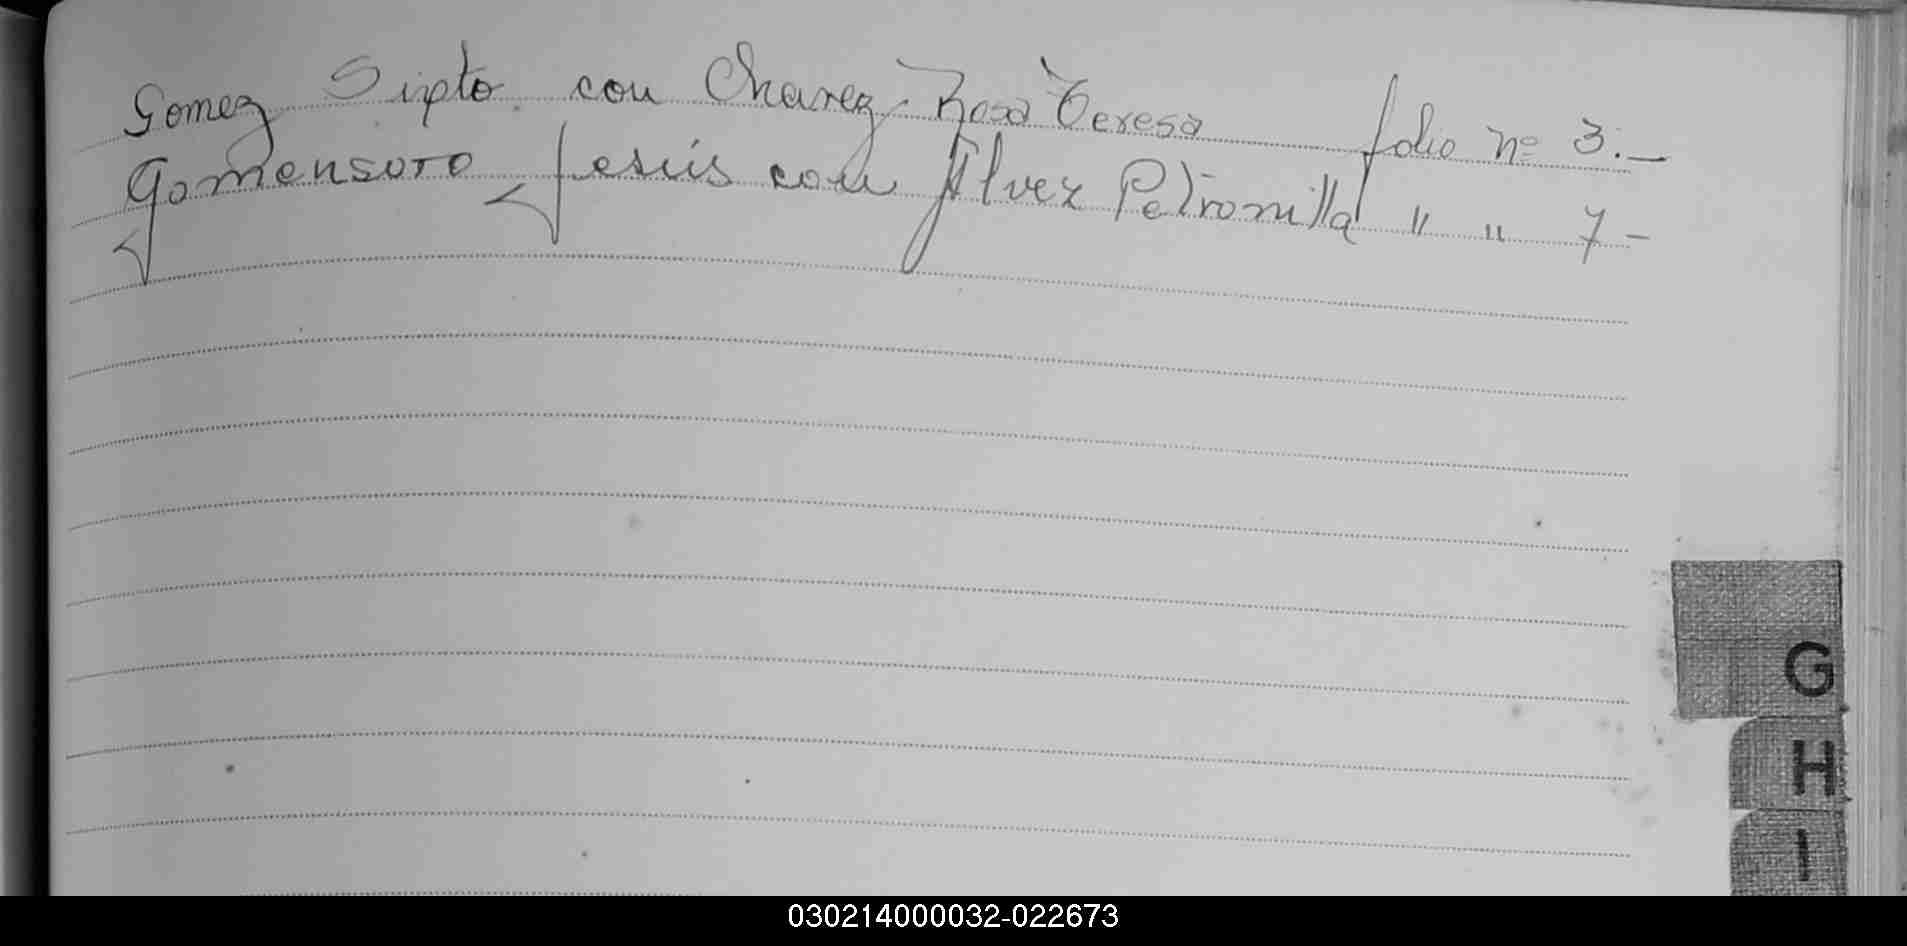 Gomez Sixto con Chavez Rosa Teresa folio nº 3.—
Gomensoro Jesús con Alvez Petronilla " " 7-
G
H
I
030214000032-022673